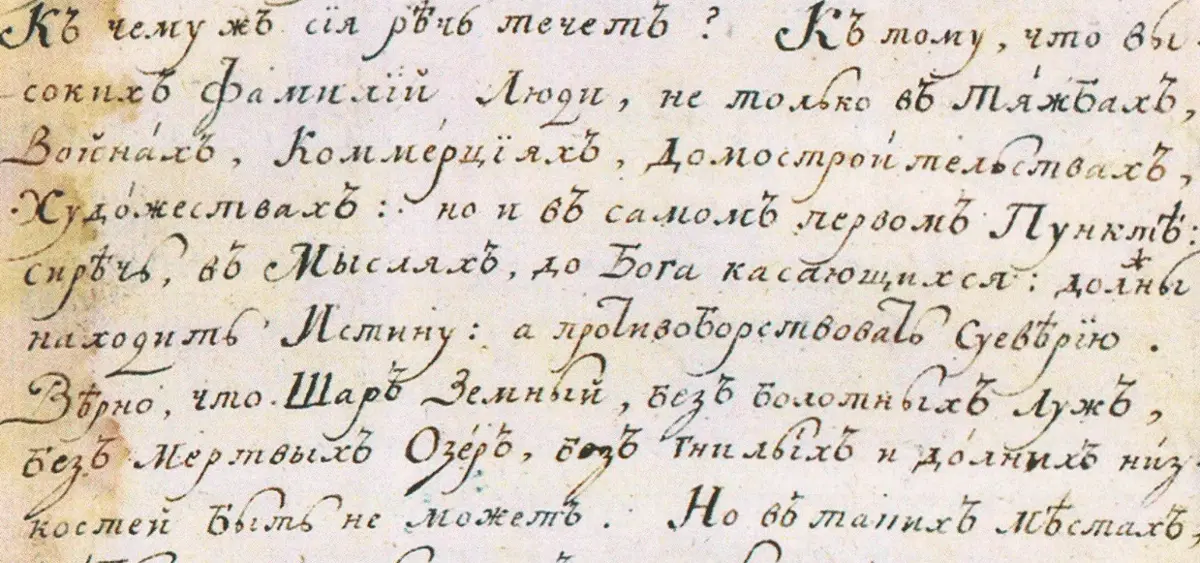 Къ чему жъ сія рѣчь течетъ? Къ тому, что вы-
сокихъ Фамилій Люди, не только въ Тя́жбахъ,
Война́хъ, Комме́рціяхъ, Домострои́тельствахъ,
Худо́жествахъ: но и въ самомъ первомъ Пунктѣ:
сирѣчь, въ Мысляхъ, до Бога касающихся: должны
находить Истину: а противоборствовать Суевѣрїю.
Вѣрно, что Шаръ Земный, безъ болотныхъ Лужъ,
безъ Мертвыхъ Озе́ръ, безъ гнилы́хъ и до́лнихъ ни́з-
костей быть не можетъ. Но въ такихъ мѣстахъ,